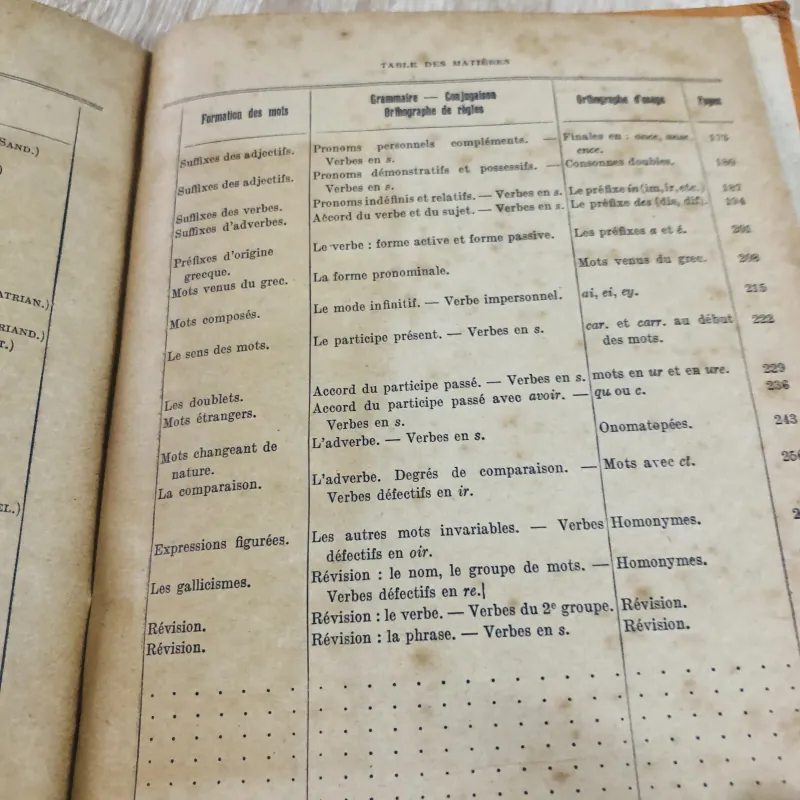 SAND.)
TABLE DES MATIÈRES
Formation des mots
Grammaire — Conjugaison
Orthographe de règles
Orthographe d'usage
Pages
Suffixes des adjectifs.
Pronoms personnels compléments. —
Verbes en s.
Finales en : ance, anse,
ence.
173
Suffixes des adjectifs.
Pronoms démonstratifs et possessifs. —
Verbes en s.
Consonnes doubles.
180
Suffixes des verbes.
Pronoms indéfinis et relatifs. — Verbes en s.
Le préfixe in (im, ir, etc.)
187
Suffixes d'adverbes.
Accord du verbe et du sujet. — Verbes en s.
Le préfixe des (dis, dif).
194
Préfixes d'origine
grecque.
Le verbe : forme active et forme passive.
Les préfixes a et é.
201
Mots venus du grec.
La forme pronominale.
Mots venus du grec.
208
Mots composés.
Le mode infinitif. — Verbe impersonnel.
ai, ei, ey.
215
Le sens des mots.
Le participe présent. — Verbes en s.
car. et carr. au début
des mots.
222
Les doublets.
Accord du participe passé. — Verbes en s.
mots en ur et en ure.
229
Mots étrangers.
Accord du participe passé avec avoir. —
Verbes en s.
qu ou c.
236
Mots changeant de
nature.
L'adverbe. — Verbes en s.
Onomatopées.
243
La comparaison.
L'adverbe. Degrés de comparaison. —
Verbes défectifs en ir.
Mots avec ct.
Expressions figurées.
Les autres mots invariables. — Verbes
défectifs en oir.
Homonymes.
Les gallicismes.
Révision : le nom, le groupe de mots. —
Verbes défectifs en re.
Homonymes.
Révision.
Révision : le verbe. — Verbes du 2e groupe.
Révision.
Révision.
Révision : la phrase. — Verbes en s.
Révision.